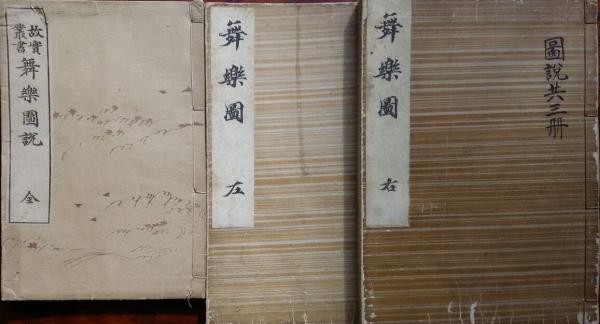 故實叢書
舞樂圖説
全
舞樂圖
左
舞樂圖
右
圖說共三册